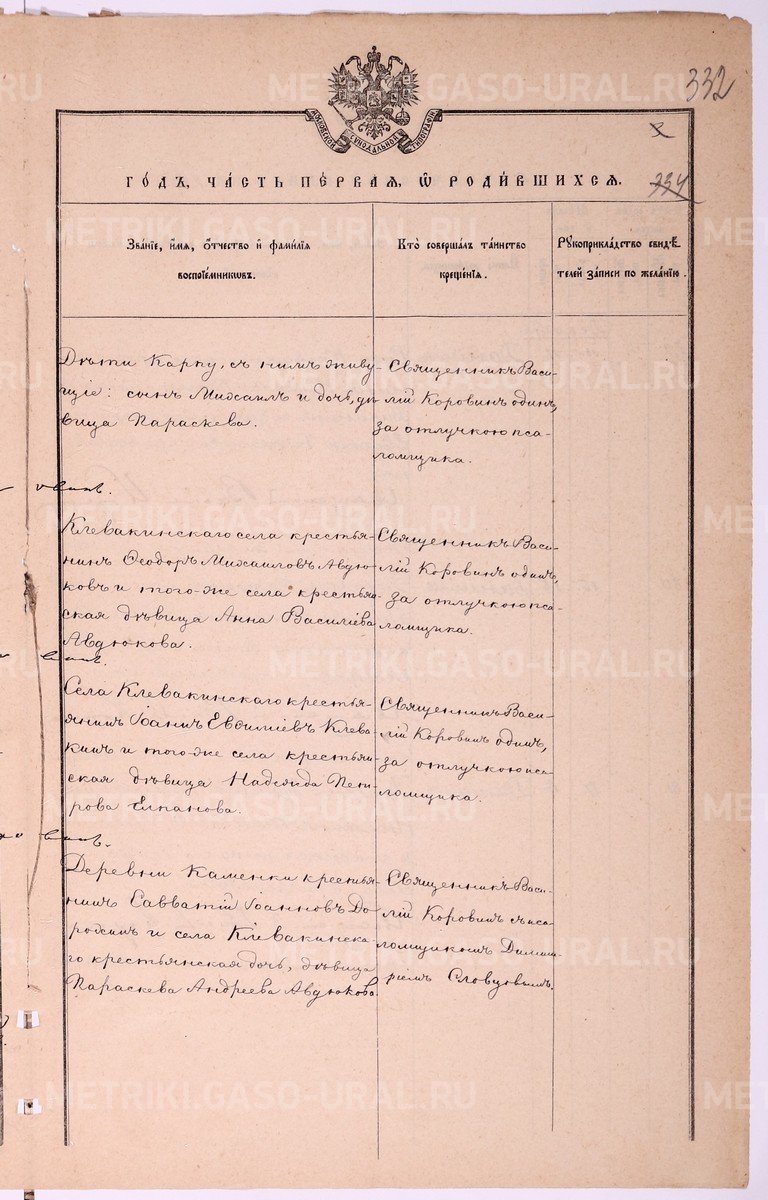 METRIKI.GASO-URAL.RU
332
МОСКОВСКОЙ СѴНОДАЛЬНОЙ ТИПОГРАФІИ
334
ГО́ДЪ, ЧА́СТЬ ПЕ́РВАЯ, Ѿ РОДИ́ВШИХСЯ.
Зва́нїе, и́мя, о́тчество и̂ фами́лїя
воспрїе́мникѡвъ.
Кто̀ соверша́лъ та́инство
креще́нїя.
Рꙋкоприкла́дство свидѣ́-
телей за́писи по жела́нїю.
Дѣти Карпу, съ нимъ живу-
щіе: сынъ Михаилъ и дочь, дѣ-
вица Параскева.
Священникъ Васи-
лій Коровинъ одинъ,
за отлучкою пса-
ломщика.
Клевакинскаго села крестья-
нинъ Ѳеодоръ Михаиловъ Авдю-
ковъ и того-же села крестьян-
ская дѣвица Анна Василіева
Авдюкова.
Священникъ Васи-
лій Коровинъ одинъ,
за отлучкою пса-
ломщика.
Села Клевакинскаго крестья-
янинъ Іоаннъ Евѳиміевъ Клева-
кинъ и того-же села крестьян-
ская дѣвица Надежда Пет-
рова Елпанова.
Священникъ Васи-
лій Коровинъ одинъ,
за отлучкою пса-
ломщика.
Деревни Каменки крестья-
нинъ Савватій Іоанновъ До-
родинъ и села Клевакинска-
го крестьянская дочь, дѣвица
Параскева Андреева Авдюкова.
Священникъ Васи-
лій Коровинъ съ пса-
ломщикомъ Димит-
ріемъ Словцовымъ.